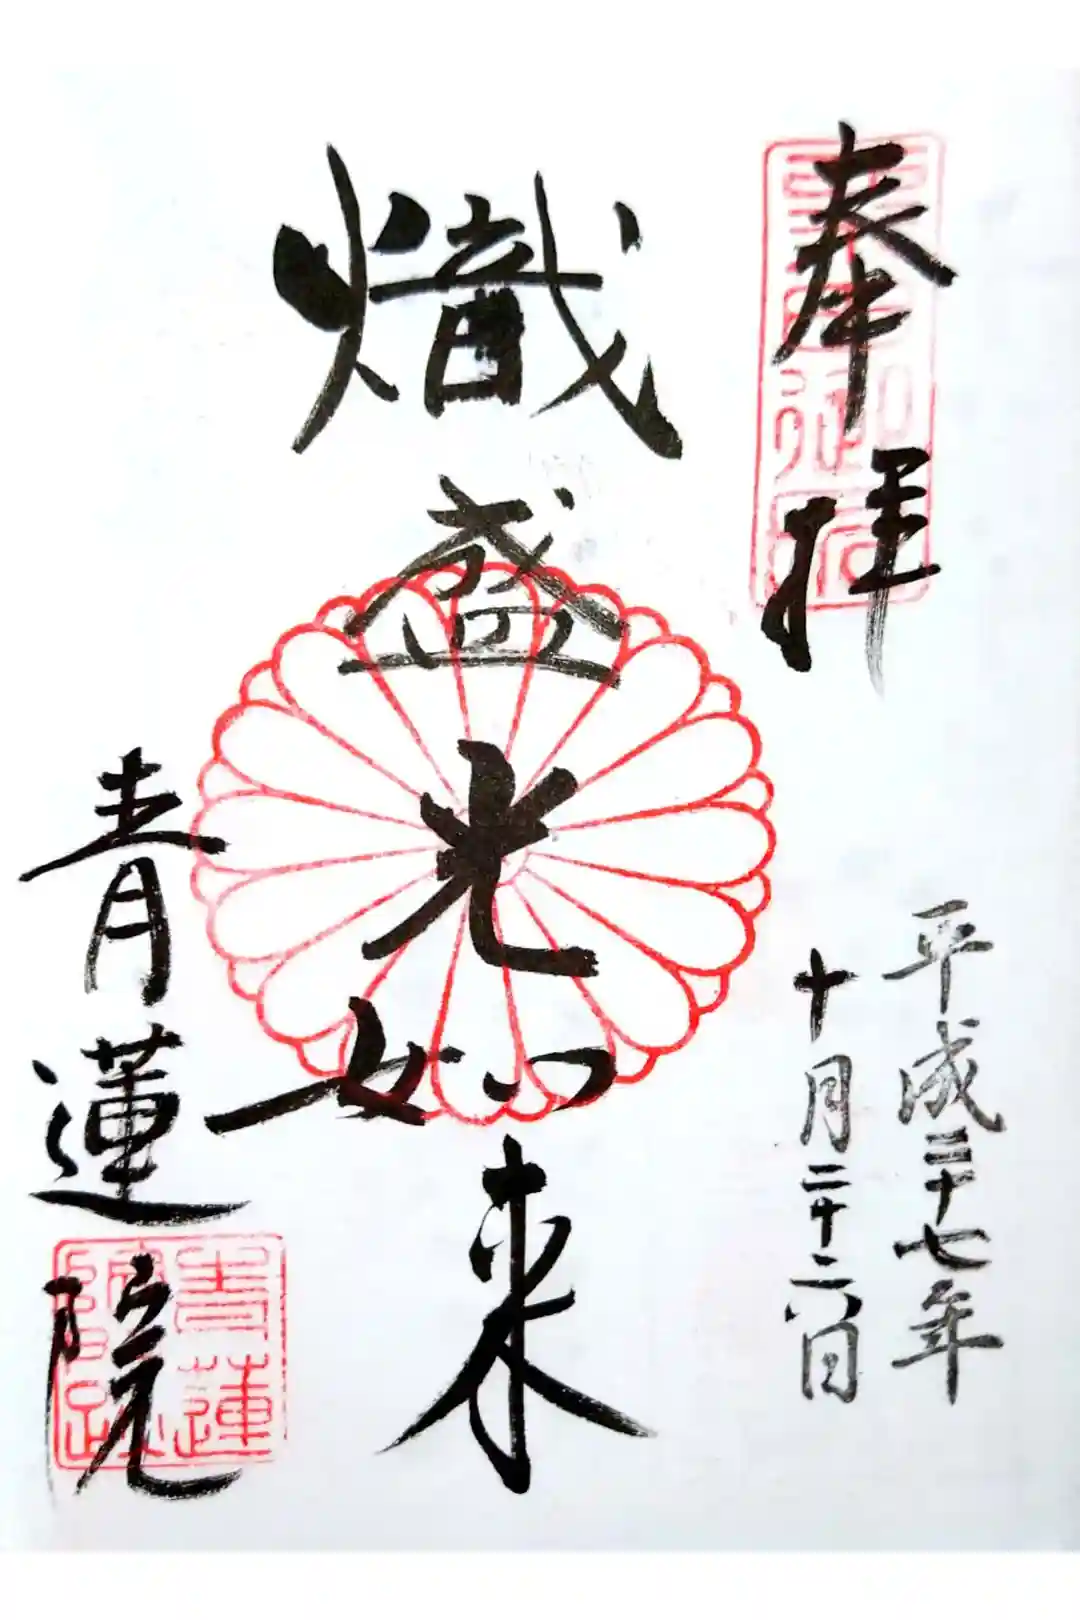 奉拝
平成二十七年
十月二十六日
熾盛光如来
青蓮院
青蓮
院跡